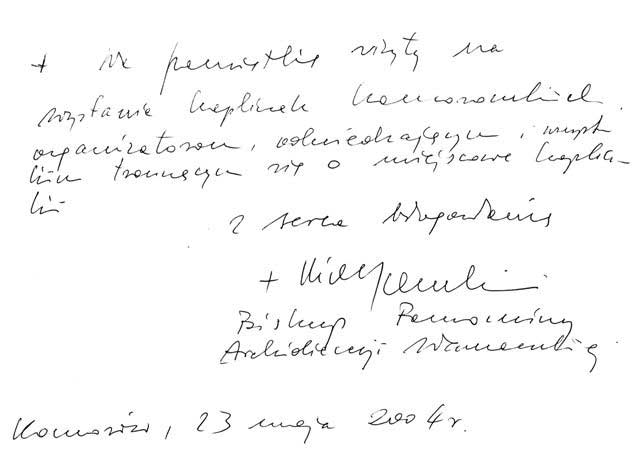 + Na pamiątkę wizyty na
wystawie kapliczek komorowskich
organizatorom, odwiedzającym i wszyst
kim troszczącym się o miejscowe kaplicz-
ki
z serca błogosławię
+
Biskup Pomocniczy
Archidiecezji Warszawskiej
Komorów, 23 maja 2004 r.